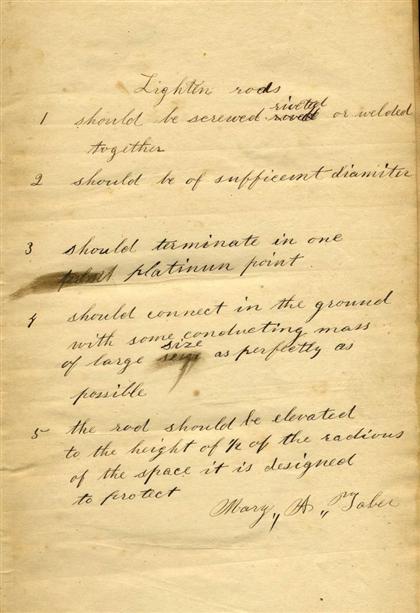 Lightin rods
1 should be screwed riveted or welded
together
2 should be of sufficeent diamiter
3 should terminate in one
platinun point
4 should connect in the ground
with some conducting mass
of large size as perfectly as
possible
5 the rod should be elevated
to the height of ½ of the radious
of the space it is designed
to protect
Mary A Taber